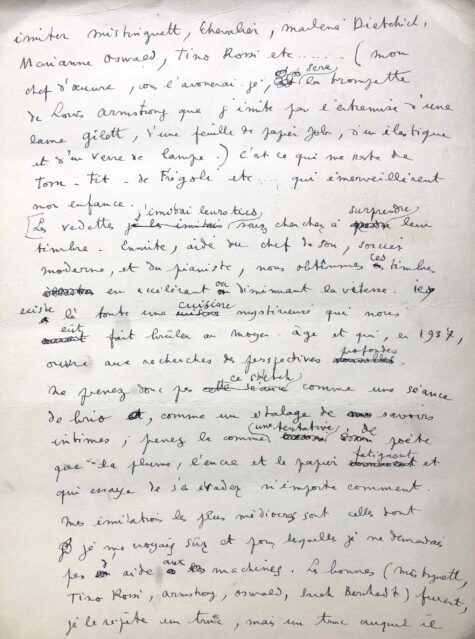 imiter mistinguett, Chevalier, marlene Dietrich,
Marianne Oswald, Tino Rossi etc....... (mon
chef d'œuvre, on l'avouerai je, sera la trompette
de Louis Armstrong que j'imite par l'entremise d'une
lame Gilett, d'une feuille de papier Job, d'un élastique
et d'un verre de lampe.) C'est ce qui me reste de
Tom-Tit - de Frégoli etc.... qui émerveillèrent
mon enfance.
[Les vedettes j'imitai leurs tics, sans chercher à surprendre leur
timbre. Ensuite, aidé du chef de son, sorcier
moderne, et du pianiste, nous obtenions ces timbres
en accélérant ou diminuant la vitesse. il y
existe là toute une cuisine mystérieuse qui nous
eut fait brûler au moyen-âge et qui, en 1937,
ouvre aux recherches des perspectives profondes.
Ne prenez donc pas ce sketch comme une séance
de brio, comme un étalage de savoirs
intimes; prenez la comme une tentative, de poète
que la plume, l'encre et le papier fatiguent et
qui essaye de s'évader n'importe comment.
Mes imitations les plus médiocres sont celles dont
je me croyais sûr et pour lesquelles je ne demandais
pas d'aide aux machines. Les bonnes (mistinguett,
Tino Rossi, armstrong, oswald, Sarah Bernhardt) furent,
je le répète un truc, mais un truc auquel il